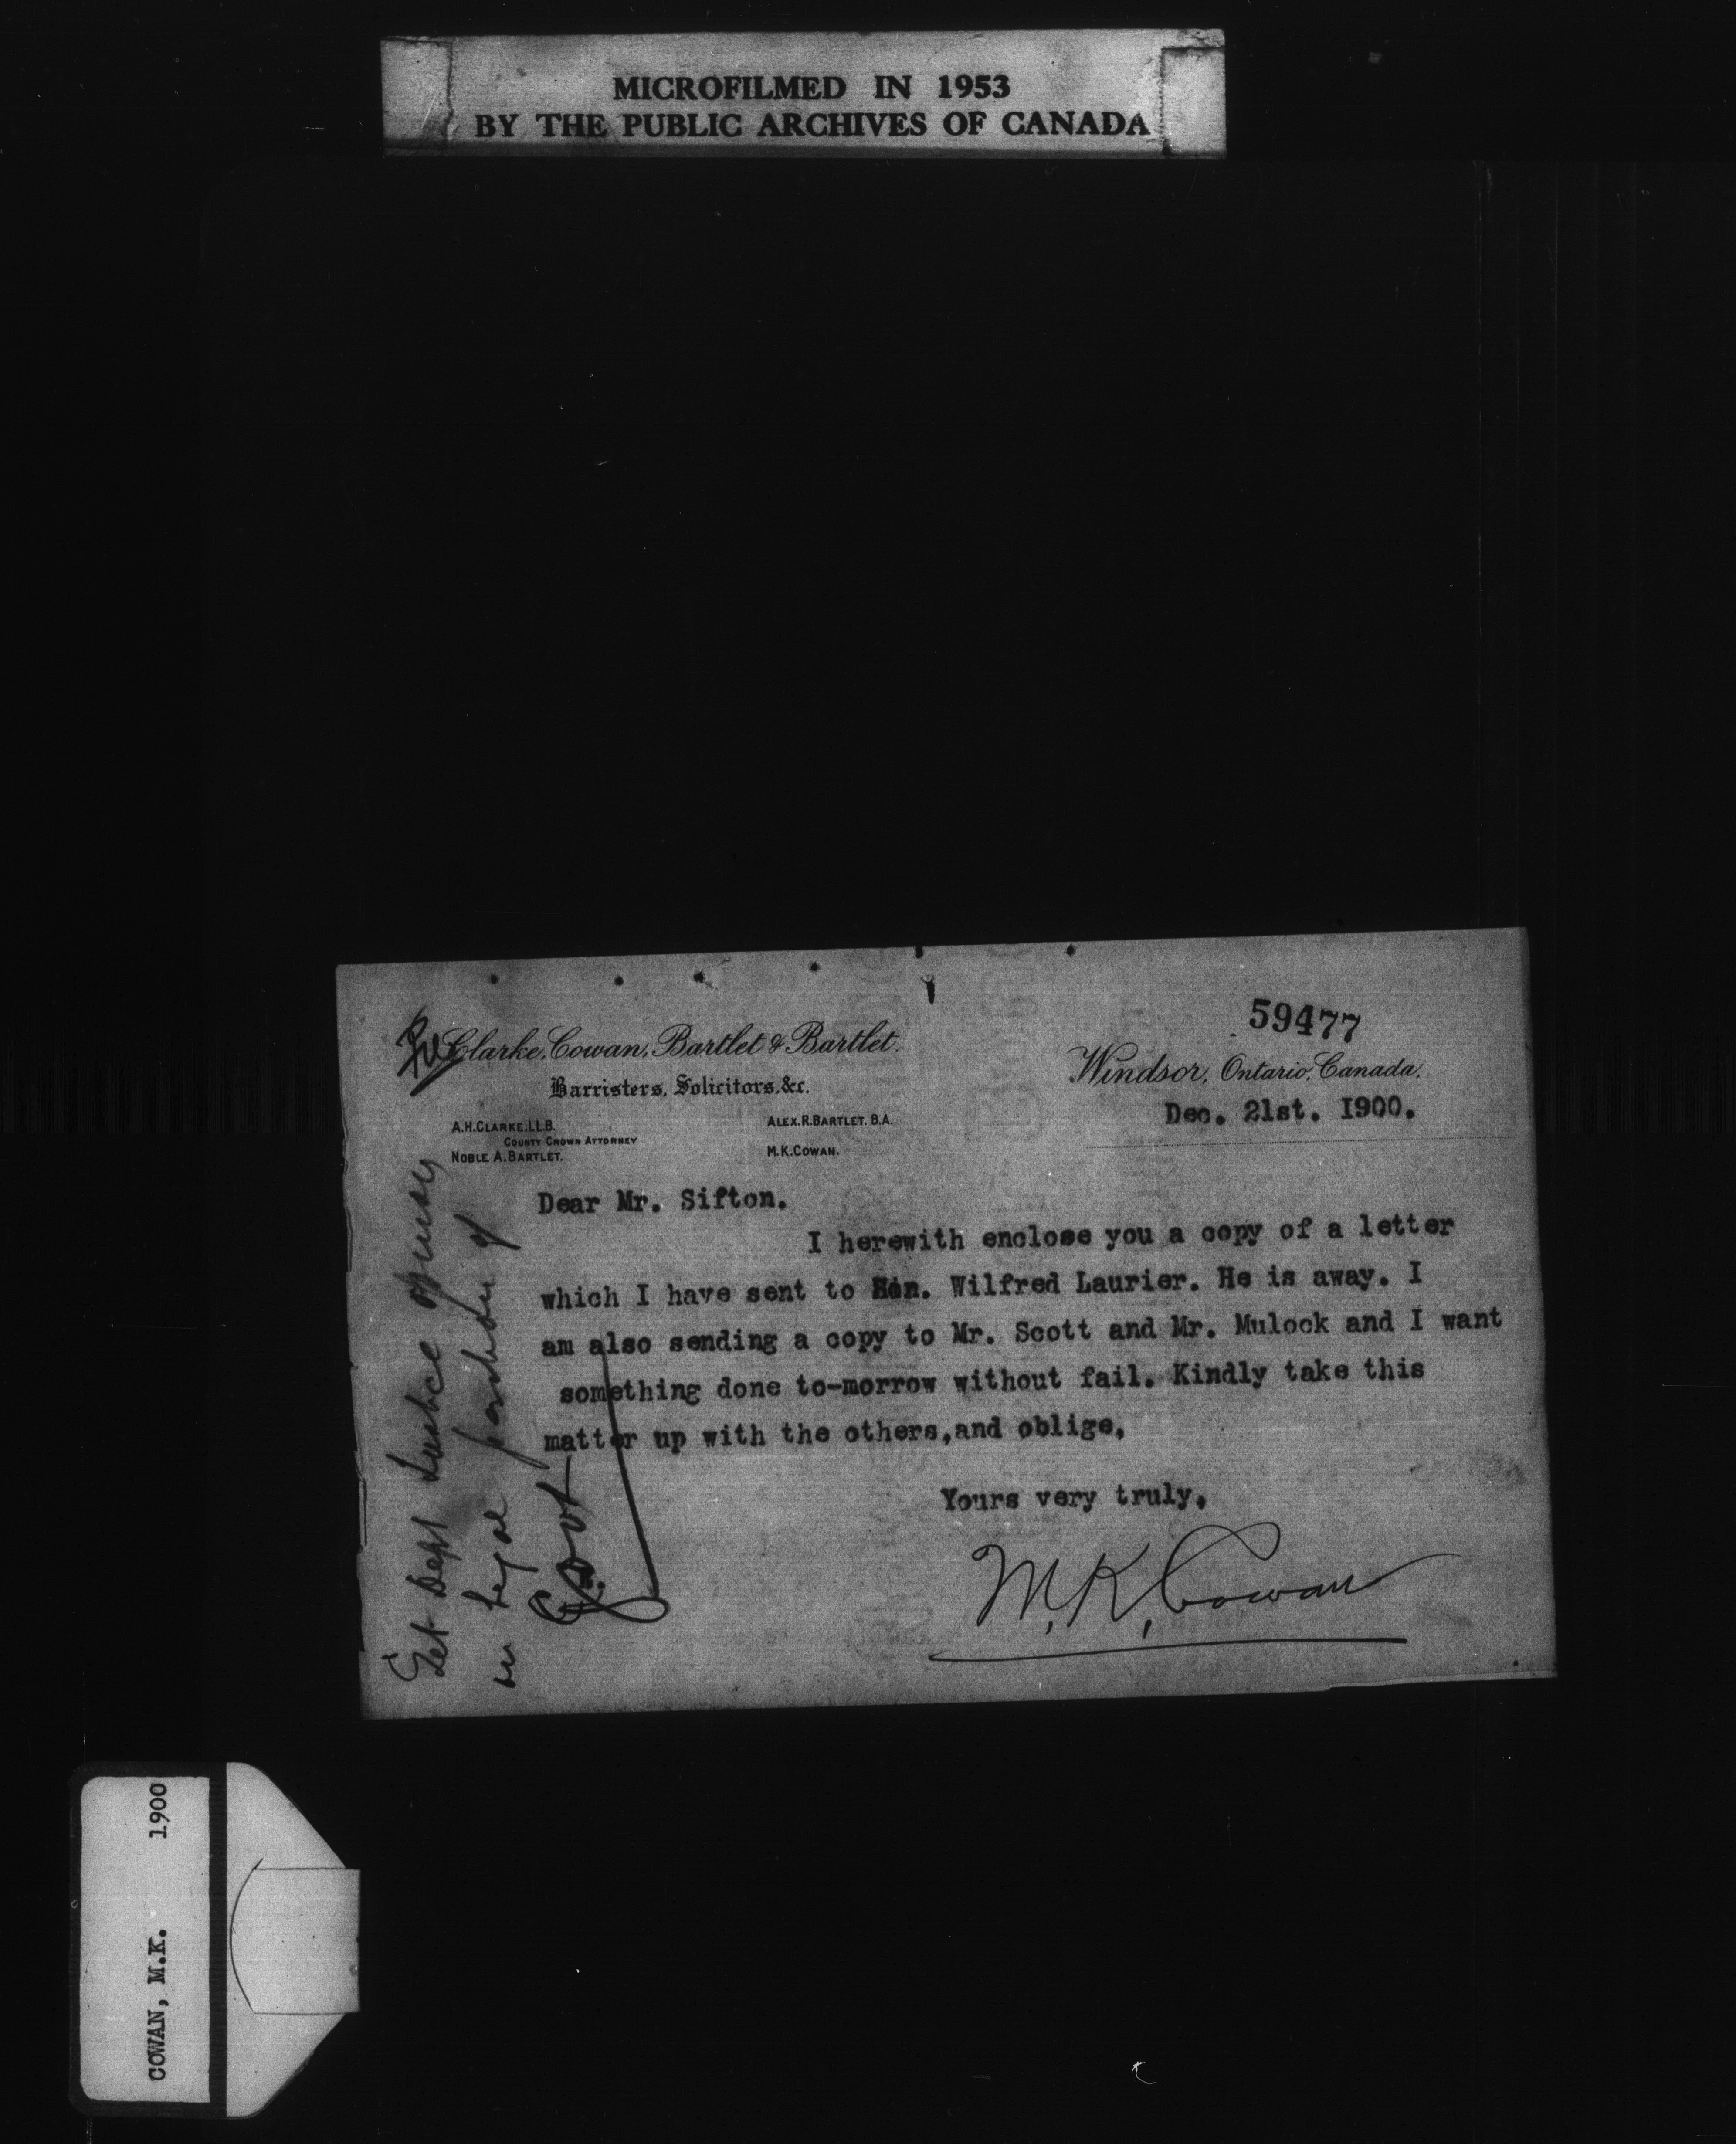 MICROFILMED IN 1953
BY THE PUBLIC ARCHIVES OF CANADA
59477
Clarke, Cowan, Bartlet & Bartlet.
Barristers, Solicitors, &c.
A.H. CLARKE. LL.B.
COUNTY CROWN ATTORNEY
NOBLE A. BARTLET.
ALEX. R. BARTLET. B.A.
M.K. COWAN.
Windsor, Ontario, Canada,
Dec. 21st. 1900.
Dear Mr. Sifton.
I herewith enclose you a copy of a letter
which I have sent to Hon. Wilfred Laurier. He is away. I
am also sending a copy to Mr. Scott and Mr. Mulock and I want
something done to-morrow without fail. Kindly take this
matter up with the others,and oblige,
Yours very truly,
M. K. Cowan
Get Dept Justice opinion
on legal position of
Govt
COWAN, M.K. 1900